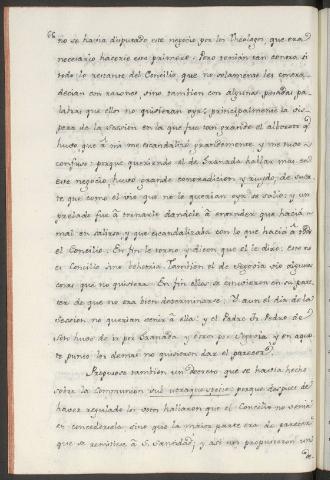 66
no se havia disputado este negocio por los Theologos, que era
necesario hacerse eso primero: Pero tenían tan contra sí
todo lo restante del Concilio, que no solamente les contra-
decian con razones sino tambien con algunas pesadas pa-
labras que ellos no quisieran oyr; principalmente la vis-
pera de la Session en la que fue tan grande el alboroto q̃
huvo, que â mi me escandalizò grandemente, y me tuvo
confuso: porque queriendo el de Granada hablar mas en
este negocio, huvo grande contradicion, y ruydo, de suer-
te que como el viò que no le querian oyr, se saliò; y un
prelado fue â tenerle dandole â entender que hacia
mal en salirse, y que escandalizaba con lo que hacia â todo
el Concilio. En fin le tornò, y dicen que el le dixo: esto no
es Concilio sino behetria. Tambien el de Segovia viò algunas
cosas que no quisiera. En fin ellos se concluieron en su pare-
cer de que no era bien determinarse. Y aun el dia de la
Session no querian venir â ella: y el Padre Fr. Pedro de
Soto huvo de ir por Granada, y otros por Segovia, y en aque-
te punto los demas no quisieron dar el parecer.
Propusose tambien un Decreto que se havia hecho
sobre la Communion sub utraque specie: porque despues de
haver regulado los votos hallaron que el Concilio no venia
en concederla, sino que la maior parte era de parecer
que se remitiese â S. Santidad; y así nos propusieron un
de-